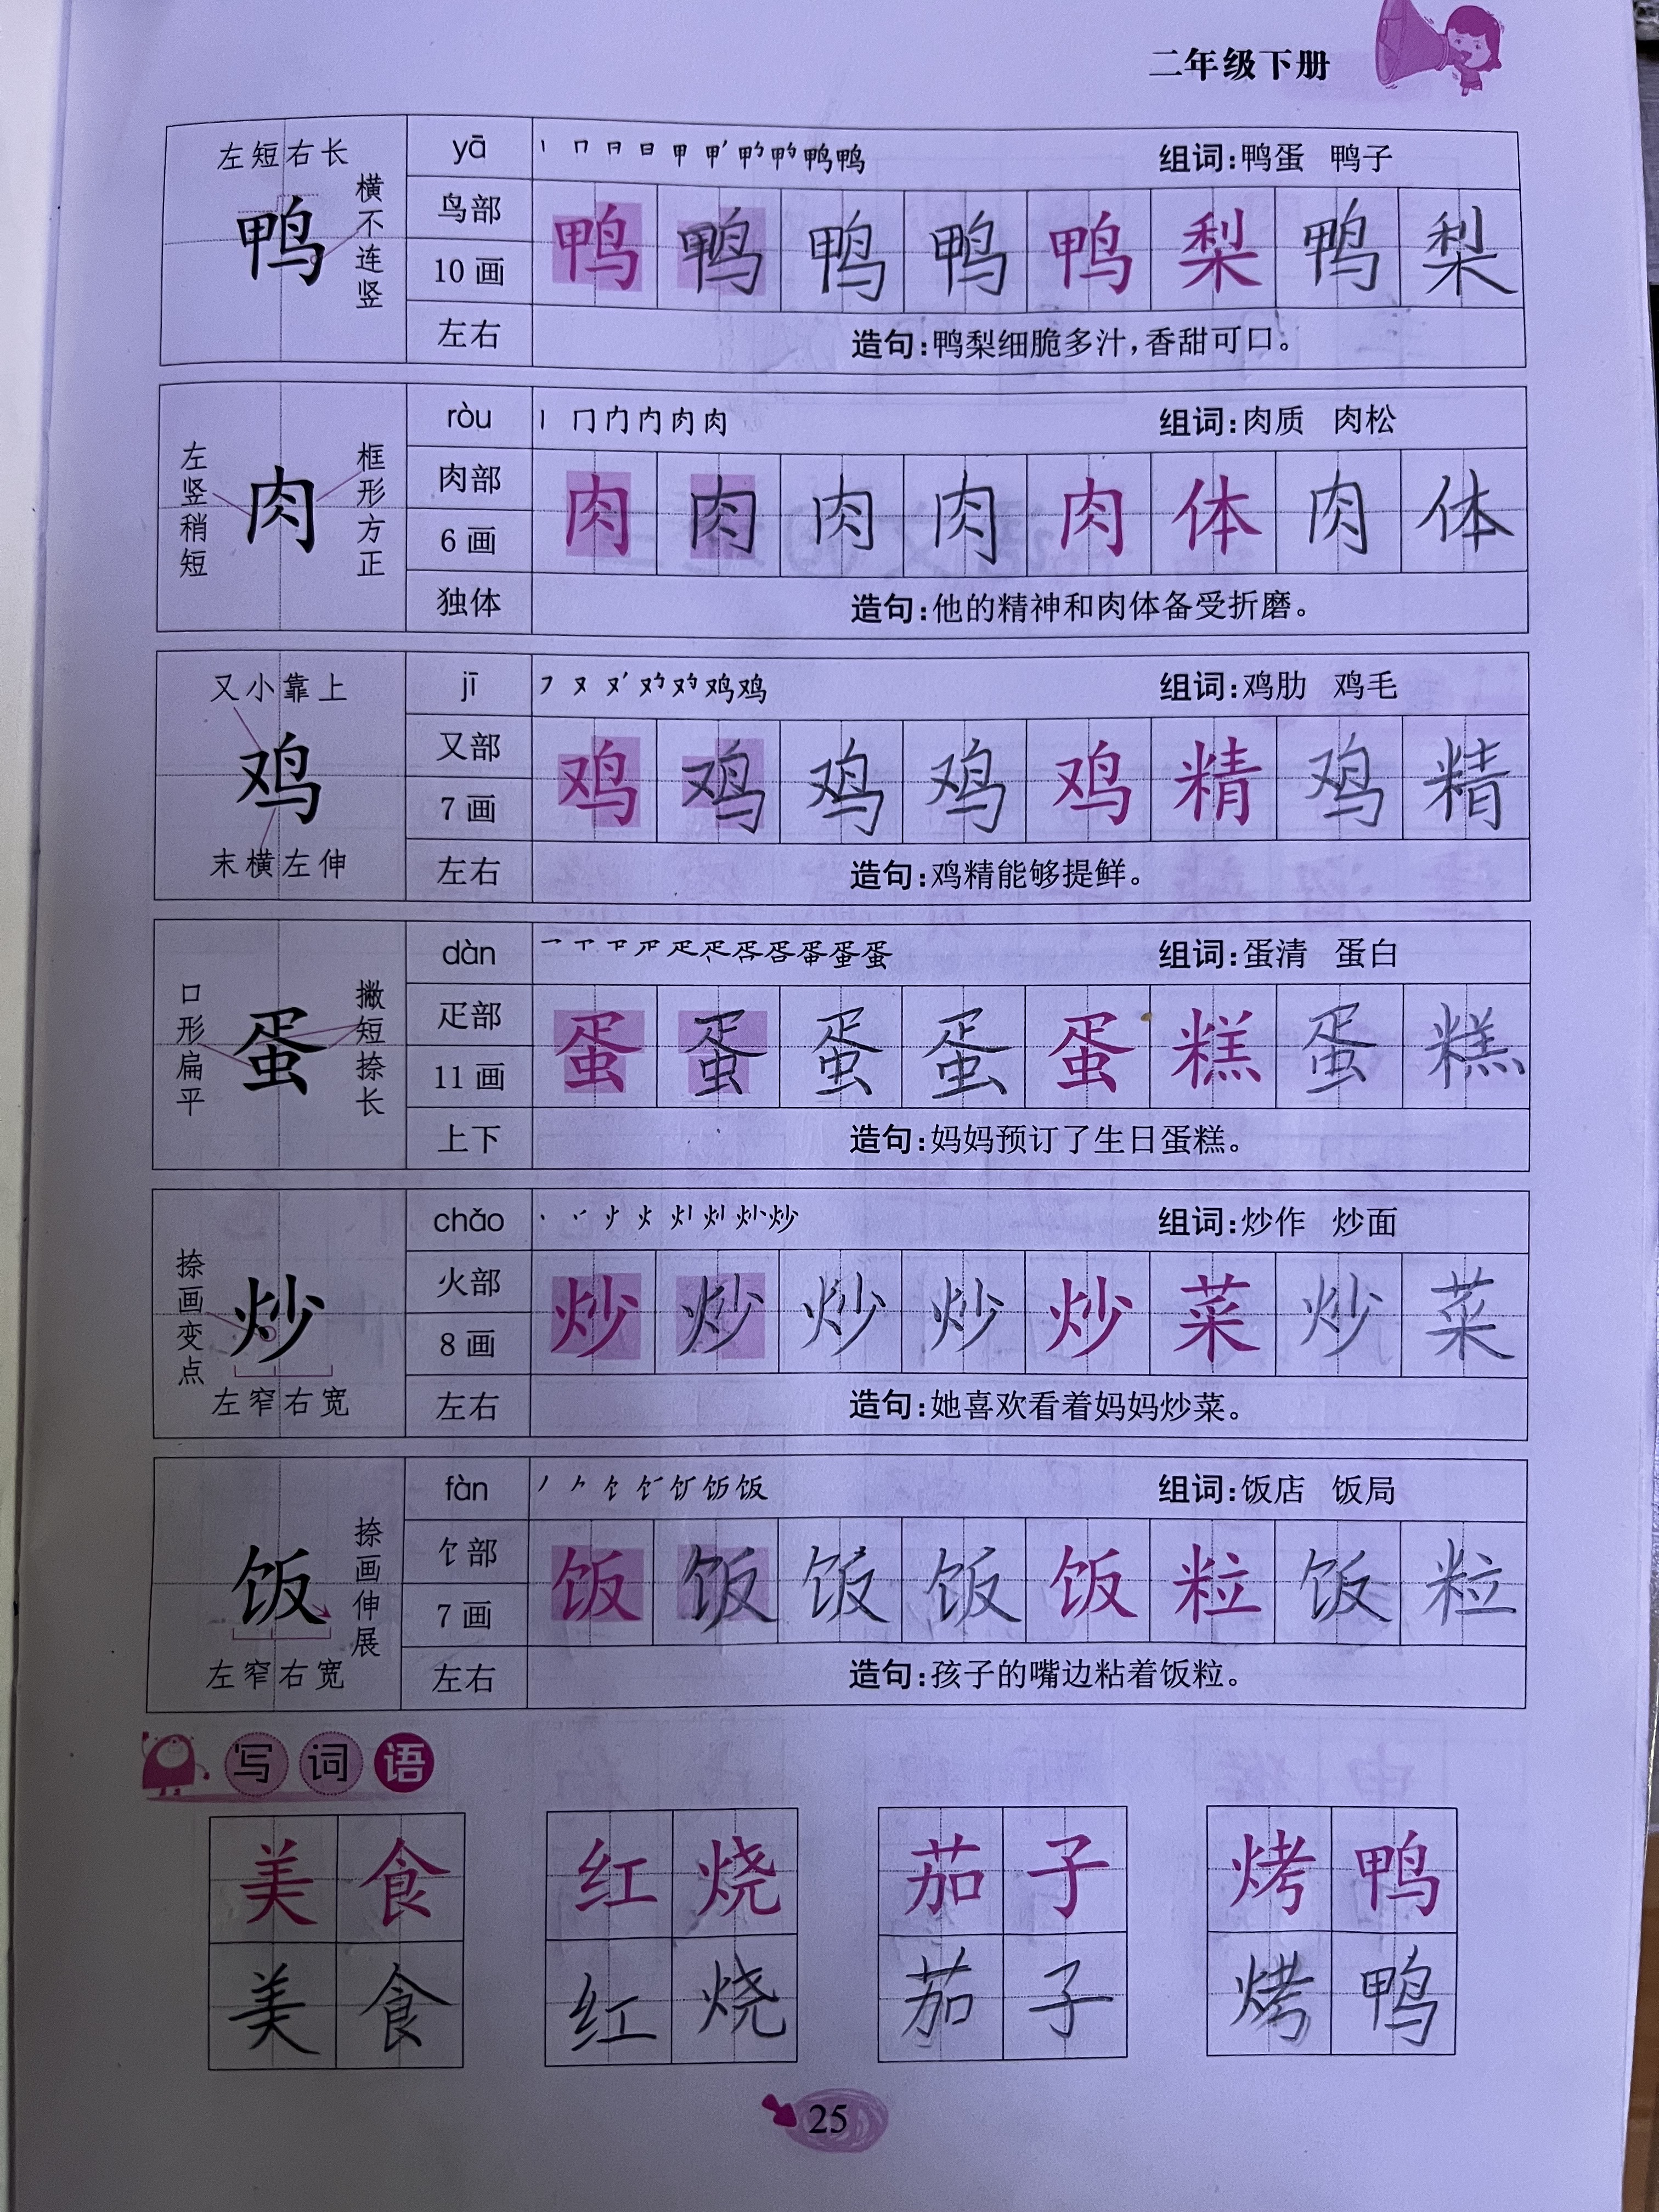 二年级下册
左短右长
横不连竖
鸭
yā
鸟部
10画
左右
组词:鸭蛋 鸭子
鸭 鸭 鸭 鸭 鸭 梨 鸭 梨
造句:鸭梨细脆多汁,香甜可口。
左竖稍短
框形方正
肉
ròu
肉部
6画
独体
组词:肉质 肉松
肉 肉 肉 肉 肉 体 肉 体
造句:他的精神和肉体备受折磨。
又小靠上
鸡
末横左伸
jī
又部
7画
左右
组词:鸡肋 鸡毛
鸡 鸡 鸡 鸡 鸡 精 鸡 精
造句:鸡精能够提鲜。
口形扁平
撇短捺长
蛋
dàn
疋部
11画
上下
组词:蛋清 蛋白
蛋 蛋 蛋 蛋 蛋 糕 蛋 糕
造句:妈妈预订了生日蛋糕。
捺画变点
炒
左窄右宽
chǎo
火部
8画
左右
组词:炒作 炒面
炒 炒 炒 炒 炒 菜 炒 菜
造句:她喜欢看着妈妈炒菜。
捺画伸展
饭
左窄右宽
fàn
饣部
7画
左右
组词:饭店 饭局
饭 饭 饭 饭 饭 粒 饭 粒
造句:孩子的嘴边粘着饭粒。
写词语
美食 红烧 茄子 烤鸭
美食 红烧 茄子 烤鸭
25